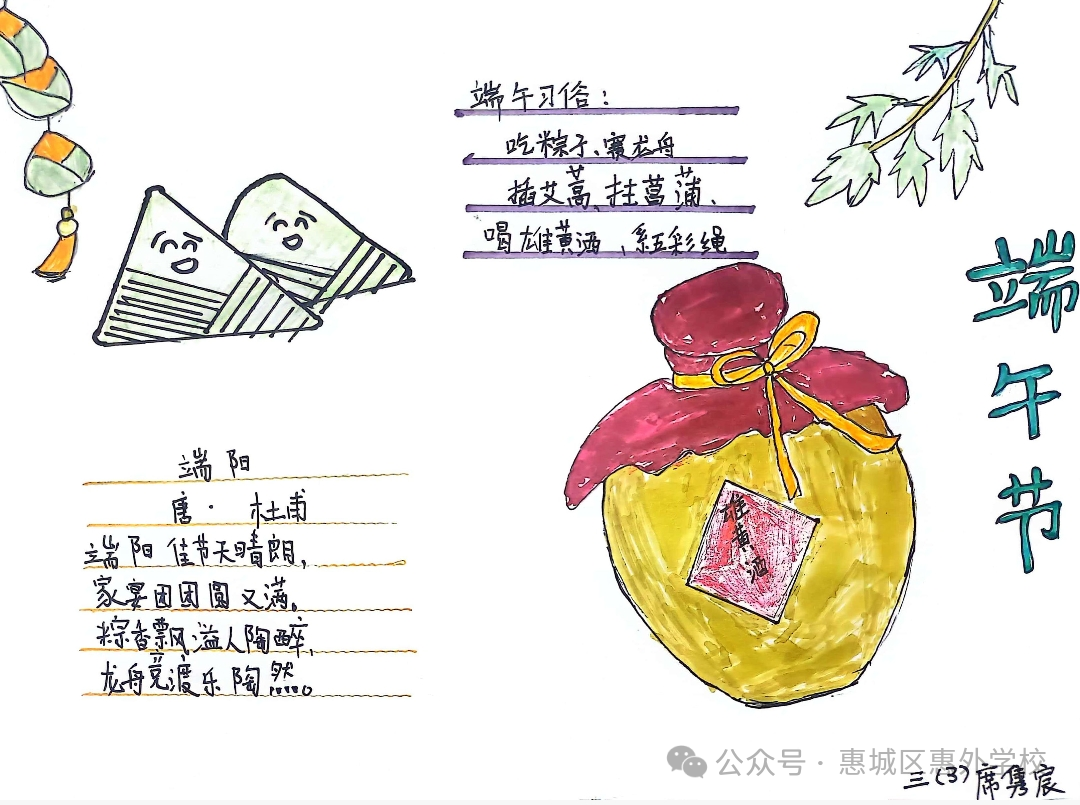 端午习俗：
吃粽子、赛龙舟
插艾蒿、挂菖蒲、
喝雄黄酒、系五彩绳
端午节
端阳
唐·杜甫
端阳佳节天晴朗，
家宴团团圆又满。
粽香飘溢人陶醉，
龙舟竞渡乐陶然。
雄黄酒
公众号·惠城区惠外学校
三（3）席隽宸